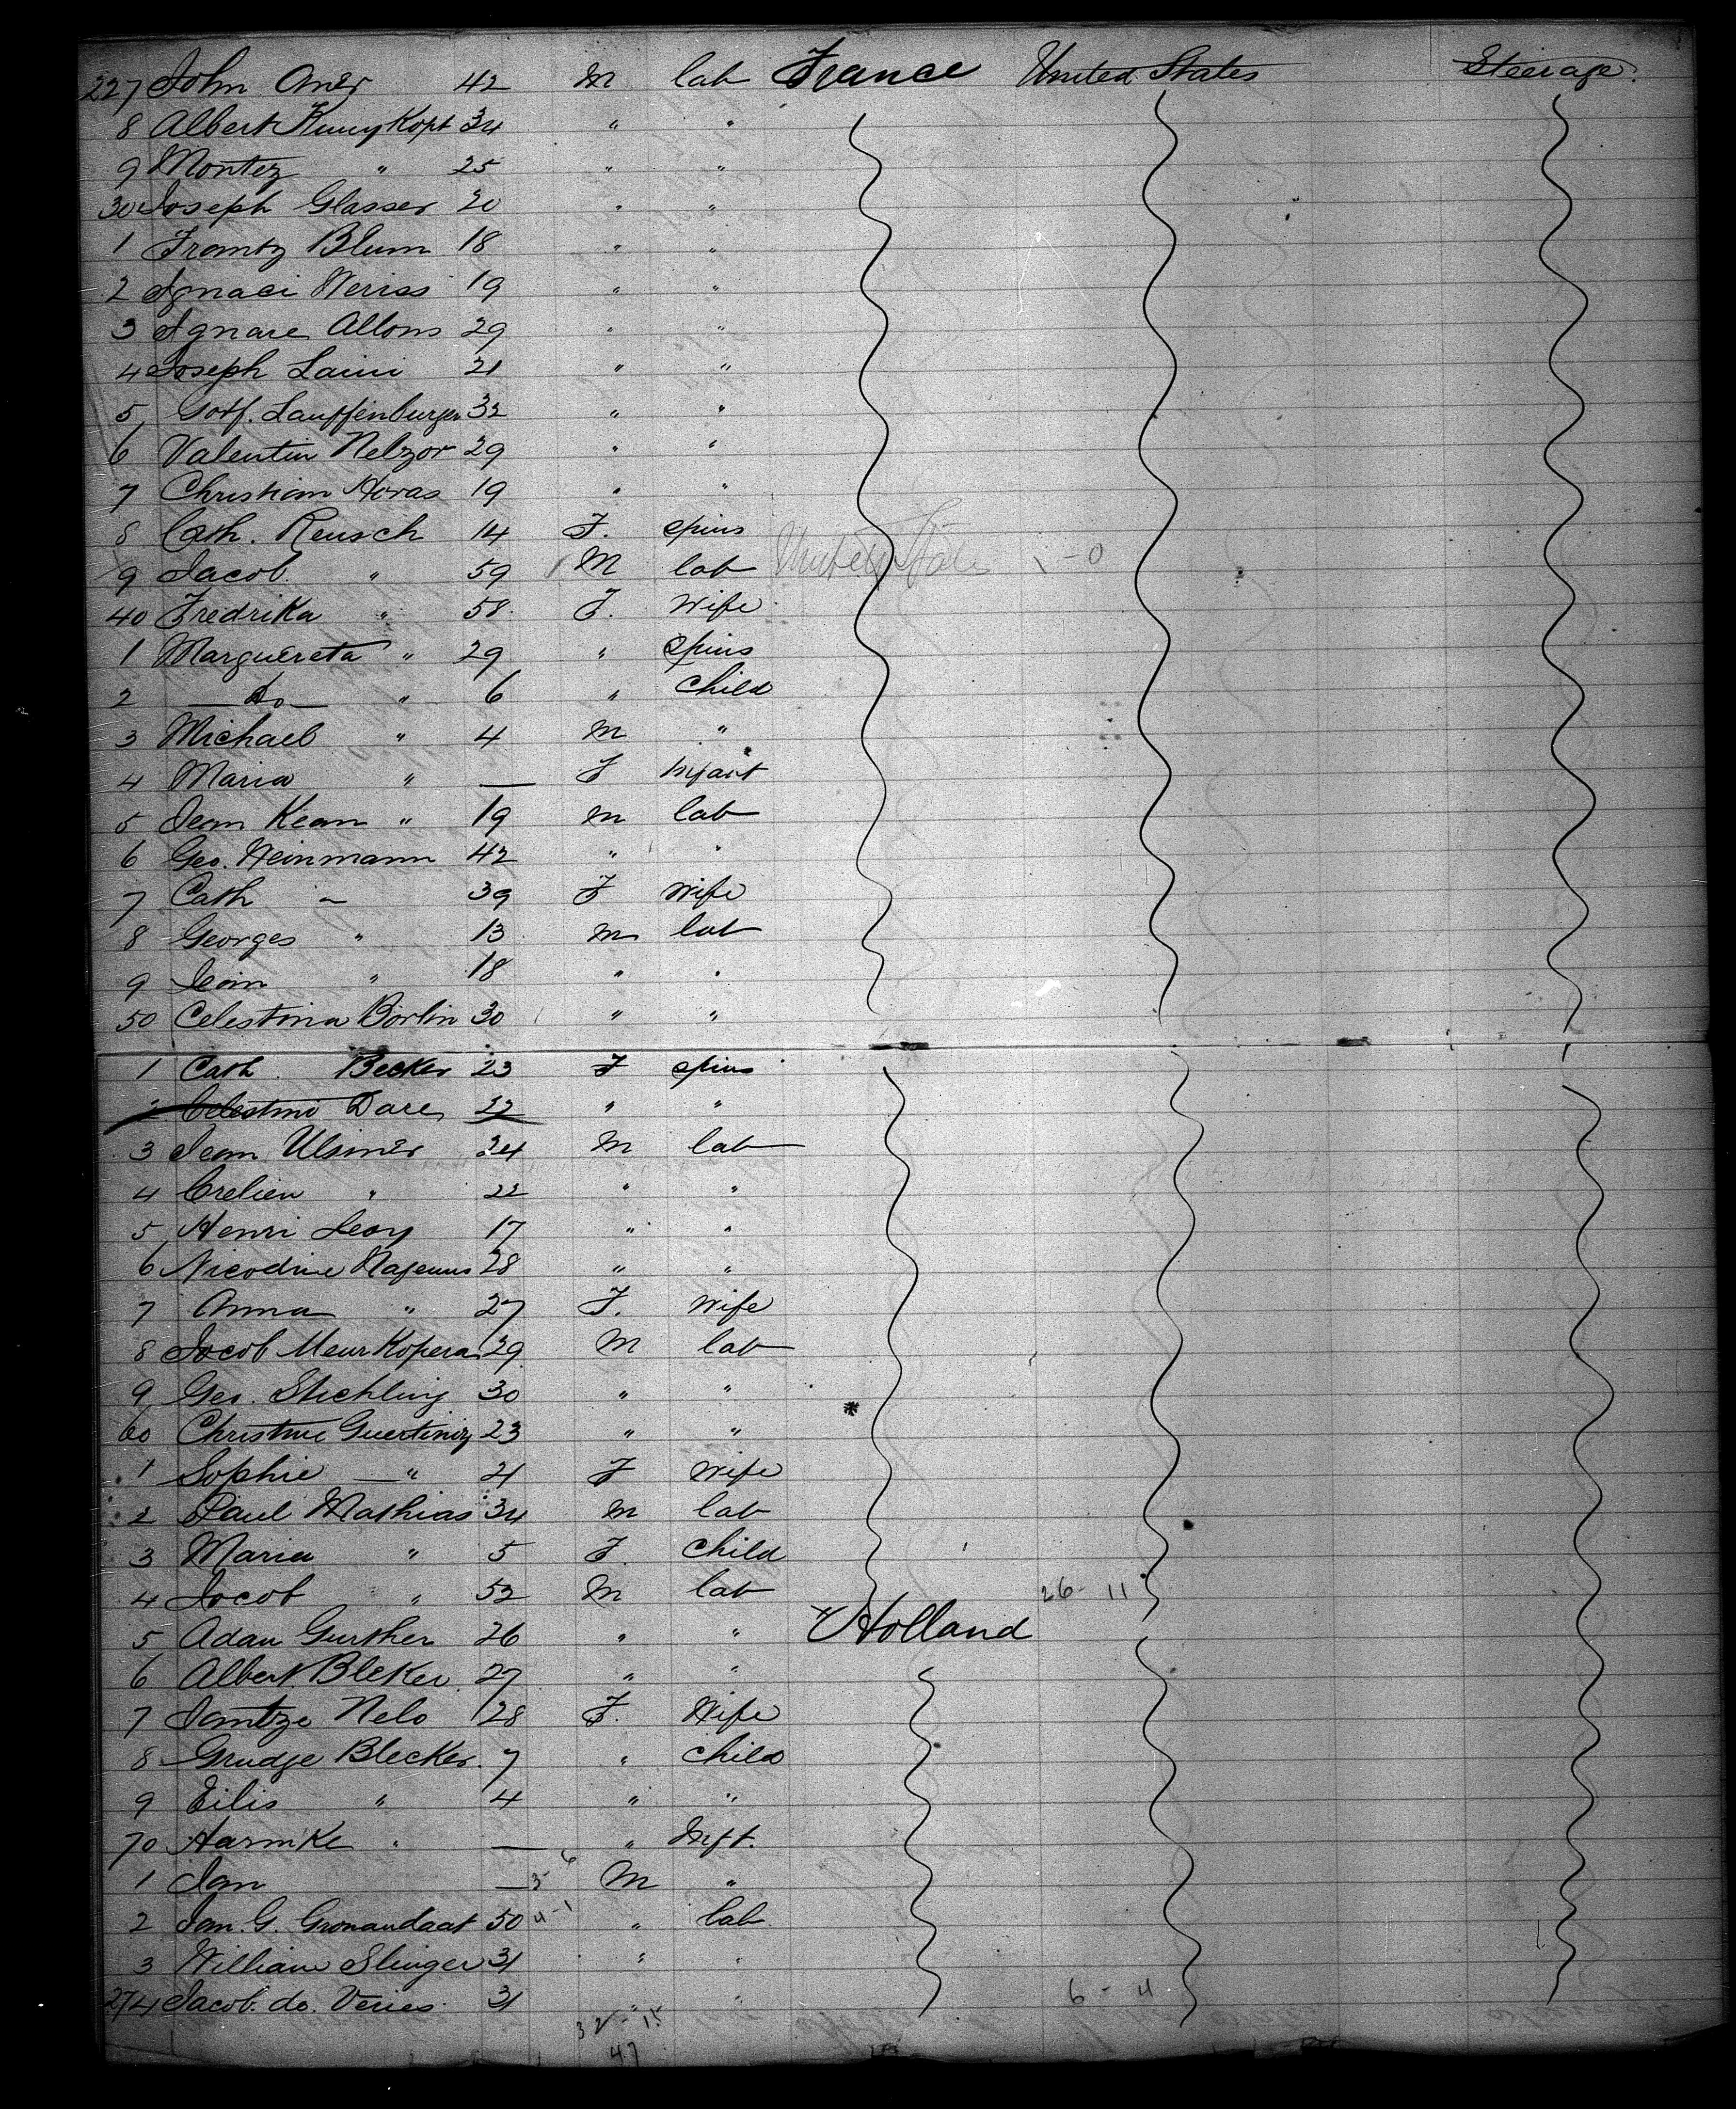 227 John Omer 42 M lab France United States Steerage.
8 Albert Kunykopt 34 " "
9 Montez " 25 " "
30 Joseph Glasser 20 " "
1 Frantz Blum 18 " "
2 Ignaci Weriss 19 " "
3 Ignare Allons 29 " "
4 Joseph Laini 21 " "
5 Gotf. Lauffenburger 32 " "
6 Valentin Nelzor 29 " "
7 Christian Horas 19 " "
8 Cath. Reusch 14 F. spins
9 Jacob " 59 M lab United States - 0
40 Fredrika " 58 F. Wife
1 Marguereta " 29 " spins
2 — do — " 6 " child
3 Michael " 4 M "
4 Maria " — F Infant
5 Jean Kean " 19 m lab
6 Geo. Heinmann 42 " "
7 Cath " 39 F Wife
8 Georges " 13 m lab
9 Jean " 18 " "
50 Celestina Borlin 30 " "
1 Cath Becker 23 F spins
2 Celestino Dare 22 " "
3 Jean Ulsmer 24 M lab
4 Crelien " 22 " "
5 Henri Leoy 17 " "
6 Nicodine Nagemus 28 " "
7 Anna " 27 F. Wife
8 Jacob Meurkopera 29 M lab
9 Geo. Stichling 30 " "
60 Christine Guertiniz 23 " "
1 Sophie — " 21 F Wife
2 Paul Mathias 34 m lab
3 Maria " 5 F. child
4 Jacob " 52 M lab 26 - 11
5 Adau Gurther 26 " " Holland
6 Albert Bleker 27 " "
7 Jamtze Nelo 28 F. Wife
8 Grudge Blecker 7 " child
9 Eilis " 4 " "
70 Harmke " — " Inft.
1 Jan — M "
2 Jan. G. Gronaudaat 50 " lab
3 William Slinger 31 " "
274 Jacob. de. Veries 31 " " 6 - 4
32 - 15
47